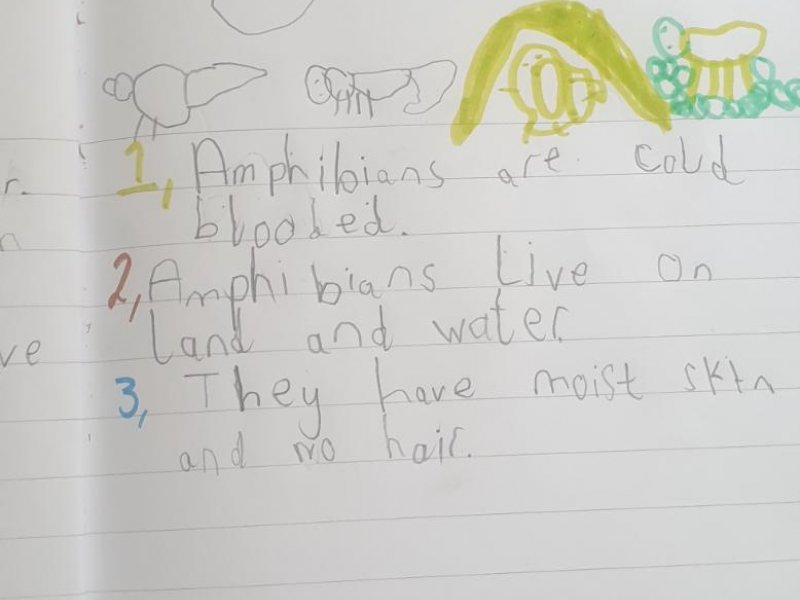 r.
n
ve
1, Amphibians are cold
blooded.
2, Amphibians Live on
land and water.
3, They have moist skin
and no hair.